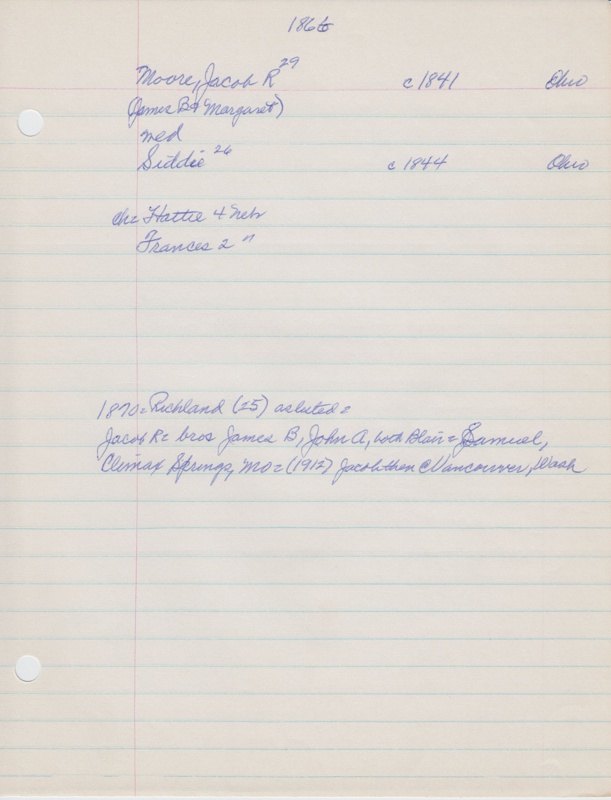 1866
Moore, Jacob R 29 c 1841 Ohio
(James B & Margaret)
wed
Siddie 26 c 1844 Ohio
ch= Hattie 4 Nebr
Frances 2 "
1870= Richland (25) as listed=
Jacob R= bros James B, John A, both Blair= Samuel,
Climax Springs, Mo= (1912) Jacob then @ Vancouver, Wash